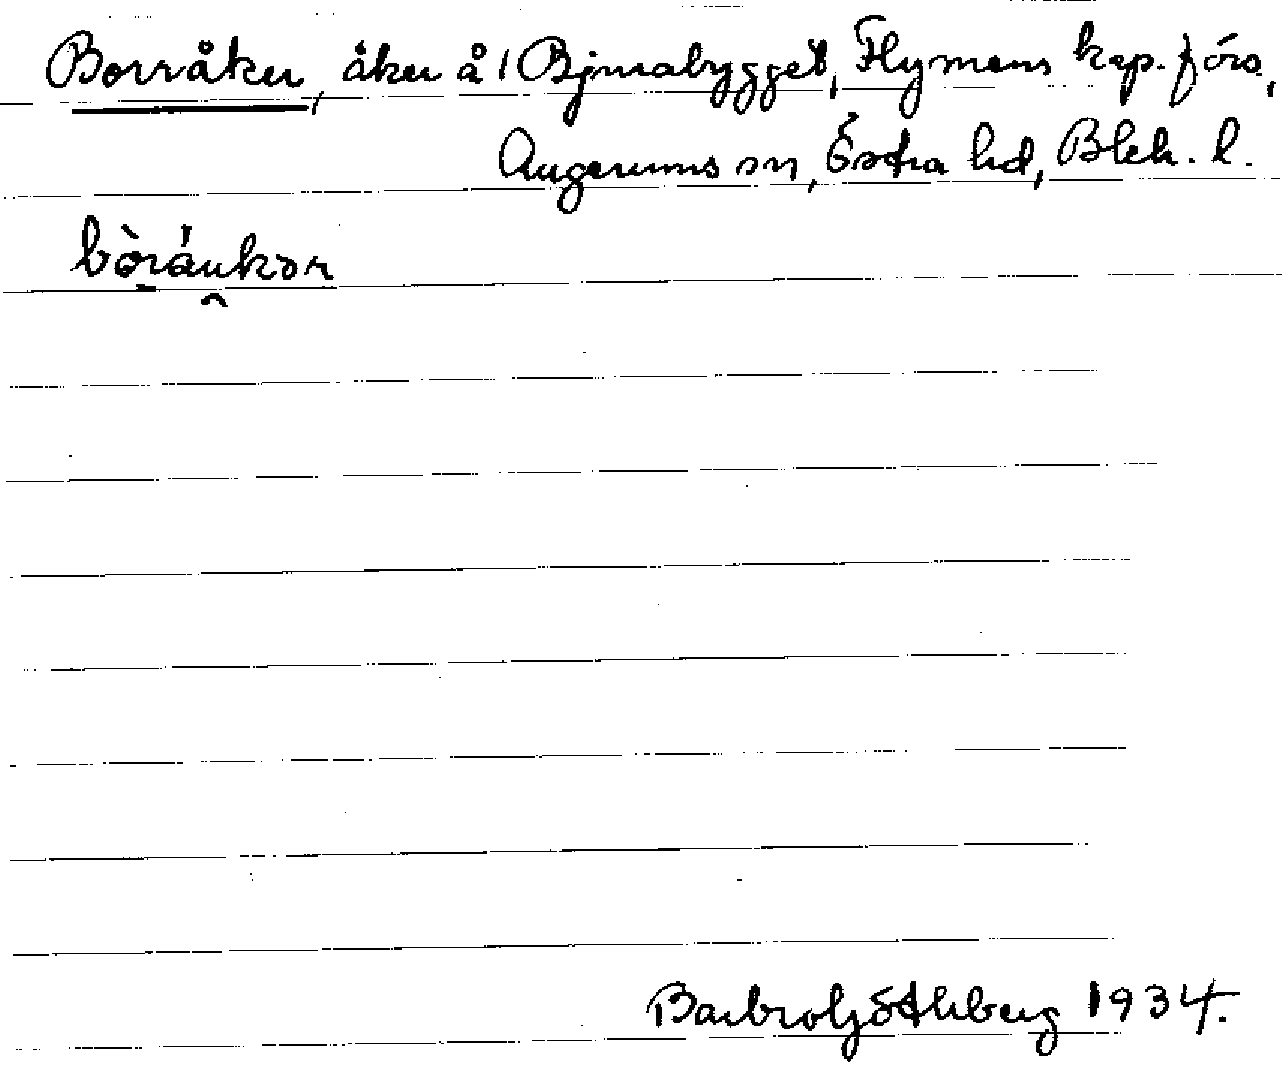 Borråker, åker å 1 Bjurabygget, Flymens kap. förs.,
Augerums sn, Östra hd, Blek. l.
bòráukər
Barbro Göthberg 1934.